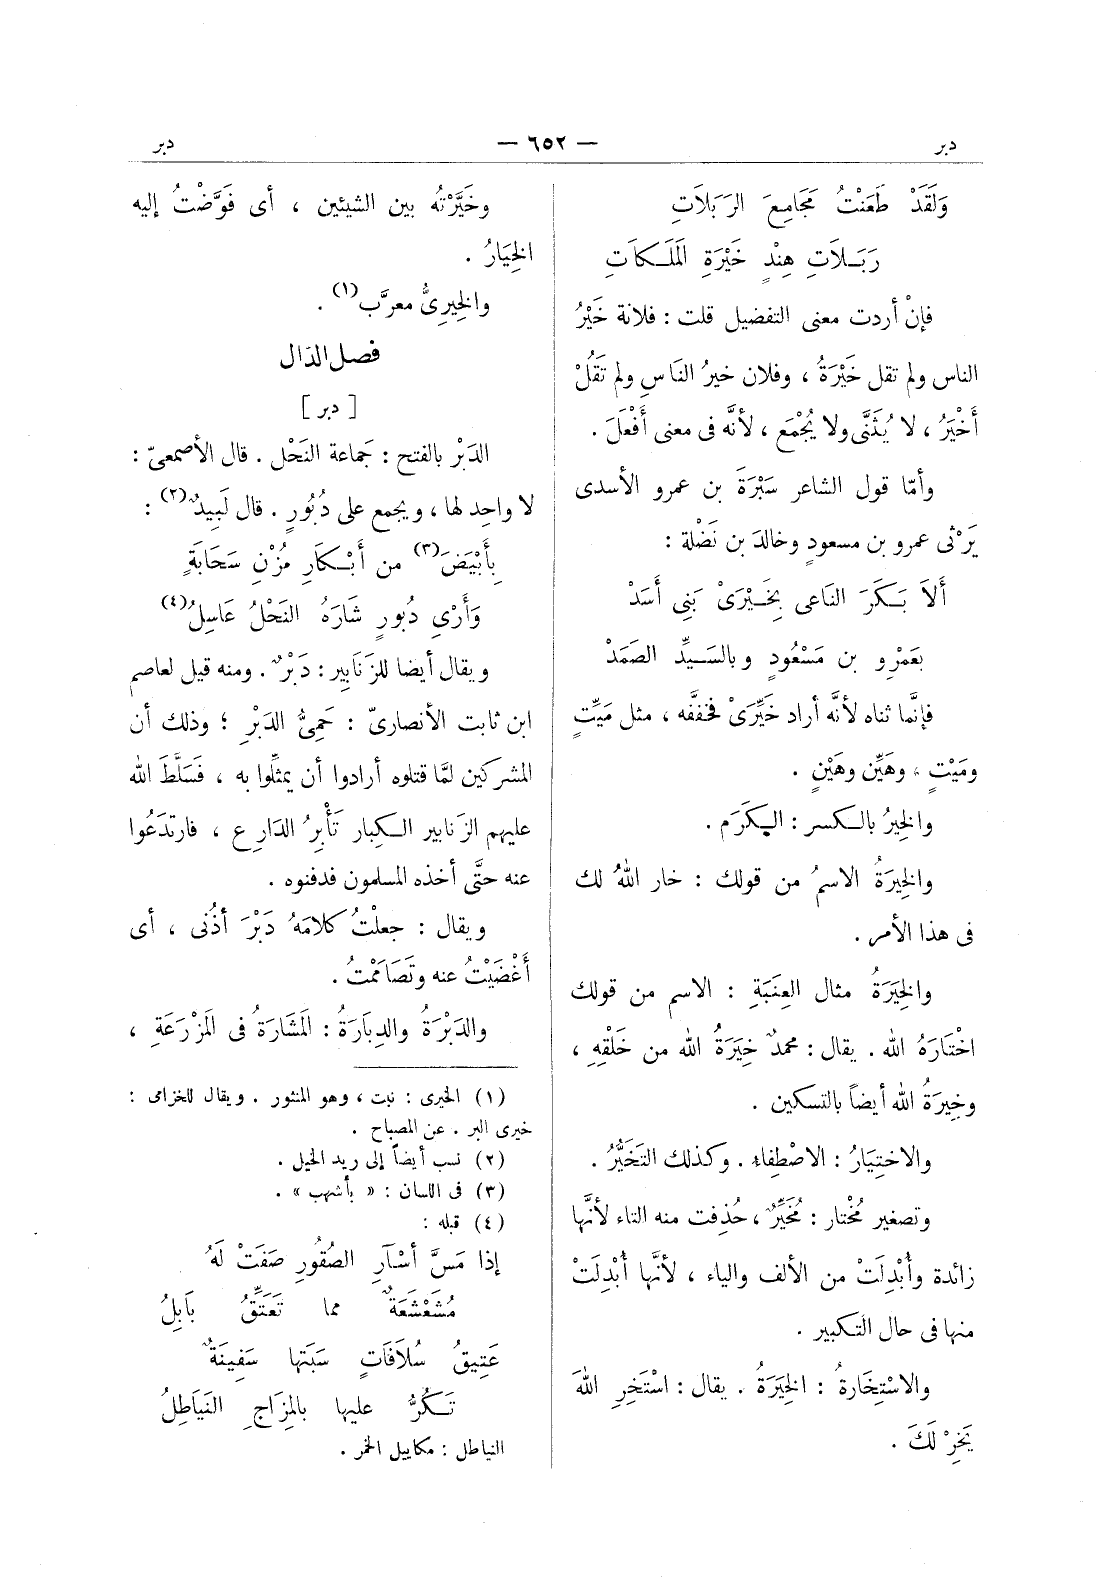 دبر — ٦٥٢ — دبر
وَلَقَدْ طَعَنْتُ مَجَامِعَ الرَبَلَاتِ
رَبَلَاتِ هِنْدٍ خَيْرَةِ المَلَكَاتِ
فإنْ أردت معنى التفضيل قلت : فلانة خَيْرُ
الناس ولم تقل خَيْرَةُ ، وفلان خيرُ النَاسِ ولم تقُلْ
أَخْيَرُ ، لا يُثَنَّى ولا يُجْمَع ، لأنَّه فى معنى أَفْعَلَ .
وأمّا قول الشاعر سَبْرَةَ بن عمرو الأسدى
يَرْثى عمرو بن مسعودٍ وخالدَ بن نَضْلة :
أَلاَ بَكَرَ الناعى بِخَيْرَىْ بَنِى أَسَدْ
بعَمْرِو بن مَسْعُودٍ وبالسَيِّدِ الصَمَدْ
فإنَّما ثناه لأنَّه أراد خَيِّرَىْ فخففَّه ، مثل مَيِّتٍ
ومَيْتٍ ، وهَيِّن وهَيْنٍ .
والخِيرُ بالكسر : الكَرَم .
والخِيرَةُ الاسمُ من قولك : خار اللهُ لك
فى هذا الأمر .
والخِيَرَةُ مثال العِنَبَةِ : الاسم من قولك
اخْتَارَهُ الله . يقال : محمدٌ خِيَرَةُ الله من خَلْقِهِ ،
وخِيرَةُ الله أيضاً بالتسكين .
والاختِيَارُ : الاصْطِفاء . وكذلك التَخَيُّرُ .
وتصغير مُخْتار : مُخَيِّرٌ ، حُذِفت منه التاء لأنَّها
زائدة وأُبْدِلَتْ من الألف والياء ، لأنَّها أُبْدِلَتْ
منها فى حال التكبير .
والاسْتِخَارةُ : الخِيَرَةُ . يقال : اسْتَخِرِ اللهَ
يَخِرْ لَكَ .
وخَيَّرْتُه بين الشيئين ، أى فَوَّضْتُ إليه
الخِيَارُ .
والخِيرِىُّ معرَّب(١) .
فصل الدال
[ دبر ]
الدَبْر بالفتح : جَماعة النَحْل . قال الأصمعىّ :
لا واحِد لها ، ويجمع على دُبُورٍ . قال لَبِيدٌ(٢) :
بِأَبْيَضَ(٣) من أَبْكَارِ مُزْنِ سَحَابَةٍ
وَأَرْىِ دُبورٍ شَارَهُ النَحْلُ عَاسِلُ(٤)
ويقال أيضا للزَنَابِير : دَبْرٌ . ومنه قيل لعاصم
ابن ثابت الأنصارىّ : حَمِىُّ الدَبْرِ ؛ وذلك أن
المشركين لمَّا قتلوه أرادوا أن يمثِّلوا به ، فَسَلَّطَ الله
عليهم الزنابير الكبار تَأْبِرُ الدَارِع ، فارتدَعُوا
عنه حتَّى أخذه المسلمون فدفنوه .
ويقال : جعلْتُ كلامَهُ دَبْرَ أُذُنى ، أى
أَغْضَيْتُ عنه وتَصَامَمْتُ .
والدَبْرَةُ والدِبَارَةُ : المَشَارَةُ فى المَزْرَعَةِ ،
(١) الخيرى : نبت ، وهو المنثور . ويقال للخزامى :
خيرى البر . عن المصباح .
(٢) نسب أيضاً إلى زيد الخيل .
(٣) فى اللسان : « بأشهب » .
(٤) قبله :
إذا مَسَّ أسْآرِ الصُقُورِ صَفَتْ لَهُ
مُشَعْشَعَةٌ مما تَعَتِّقُ بَابِلُ
عَتِيقُ سُلَافَاتٍ سَبَتْها سَفِينَةٌ
تَكُرُّ عليها بالمِزَاجِ النَيَاطِلُ
النياطل : مكاييل الخمر .